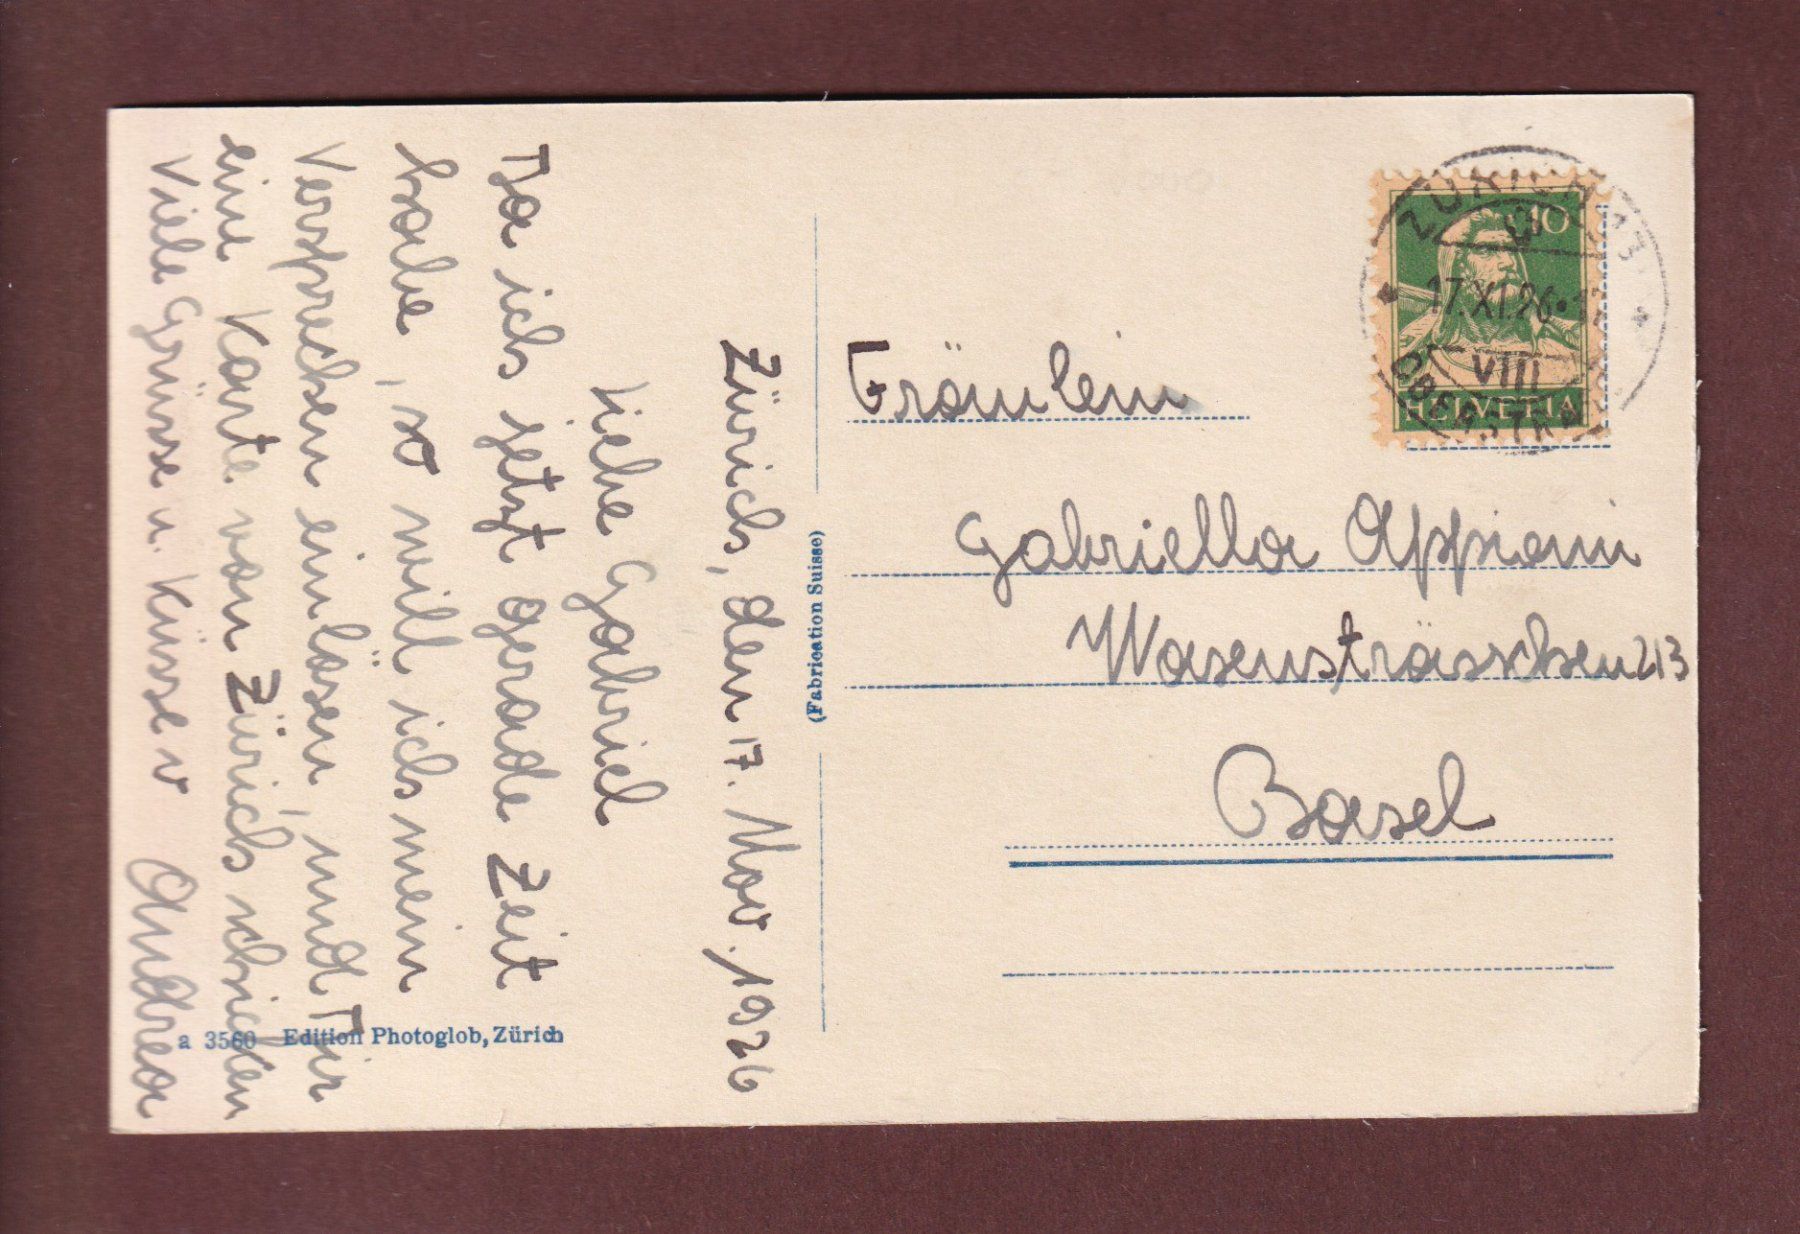 Zürich, den 17. Nov. 1926
Liebe Gabriel
Da ich jetzt gerade Zeit
habe, so will ich mein
Versprechen einlösen, und Dir
eine Karte von Zürich schicken
Viele Grüsse u. Küsse v Andrea
a 3560 Edition Photoglob, Zürich
(Fabrication Suisse)
ZÜRICH 13
17.XI.26
VIII
OBERSTRASS
10
HELVETIA
Fräulein
Gabriella Appiani
Wasensträsschen 213
Basel